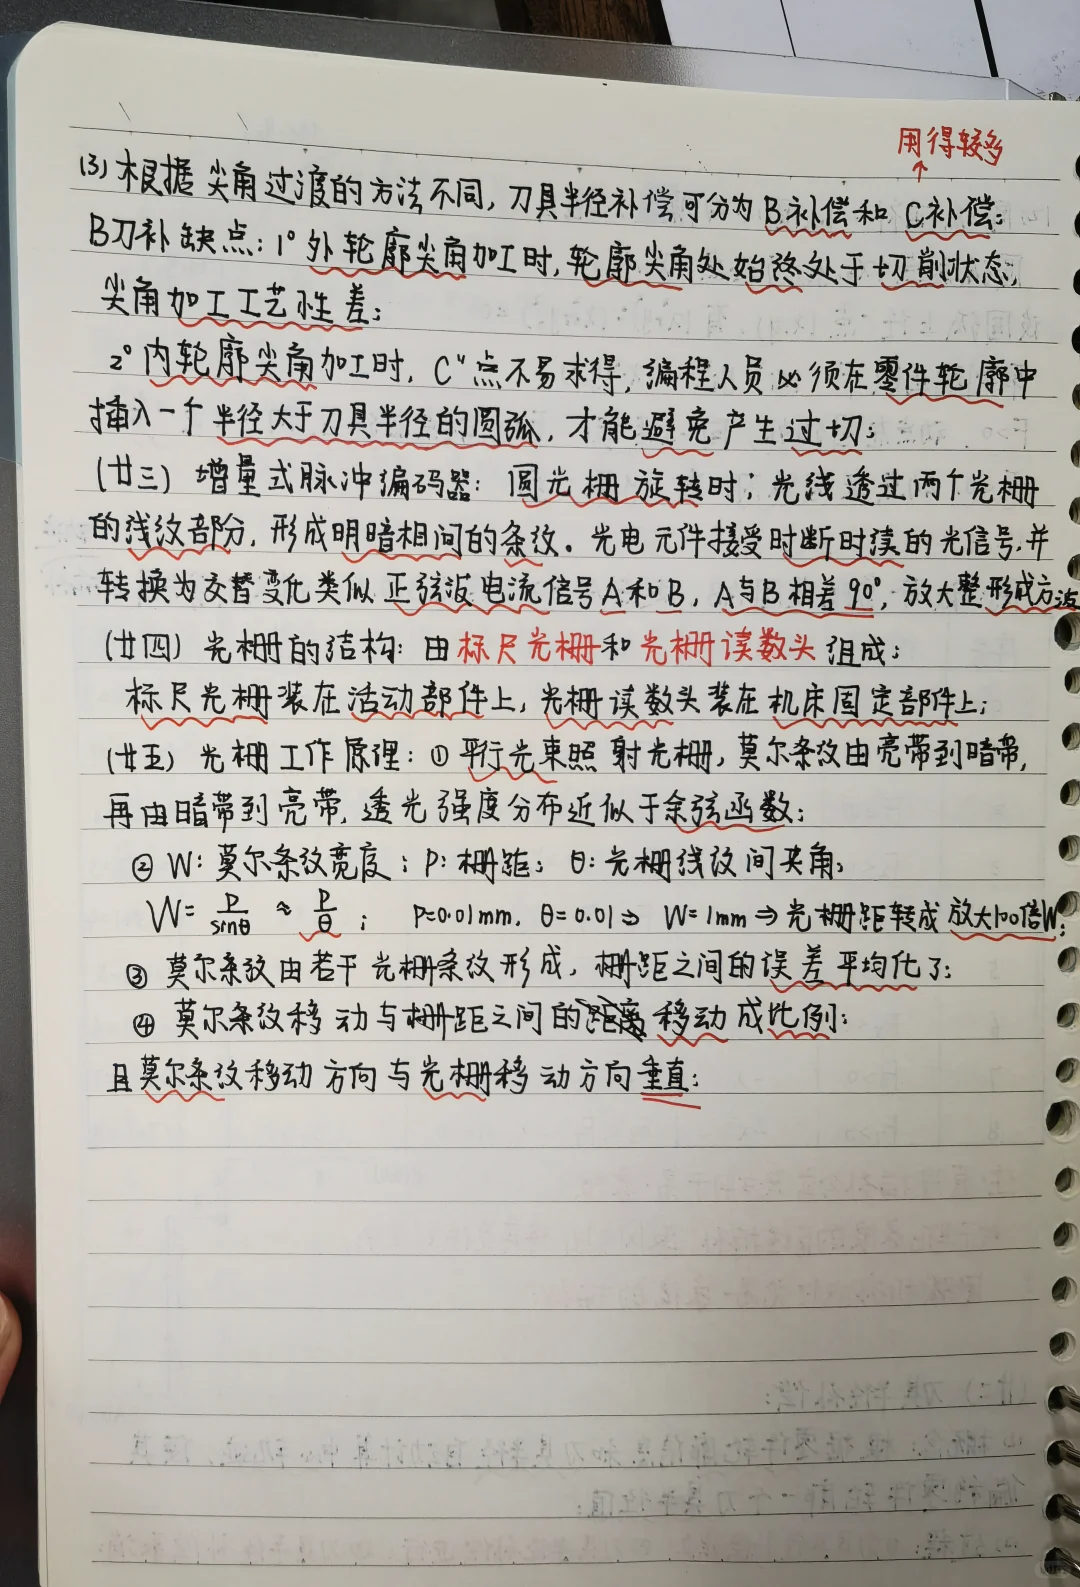 用得较多
↑
(3) 根据尖角过渡的方法不同，刀具半径补偿可分为B补偿和C补偿；
B刀补缺点：1° 外轮廓尖角加工时，轮廓尖角处始终处于切削状态，
尖角加工工艺性差；
2° 内轮廓尖角加工时，C"点不易求得，编程人员必须在零件轮廓中
插入一个半径大于刀具半径的圆弧，才能避免产生过切；
(廿三) 增量式脉冲编码器：圆光栅旋转时；光线透过两个光栅
的线纹部分，形成明暗相间的条纹。光电元件接受时断时续的光信号，并
转换为交替变化类似正弦波电流信号A和B，A与B相差90°，放大整形成方波
(廿四) 光栅的结构：由标尺光栅和光栅读数头组成；
标尺光栅装在活动部件上，光栅读数头装在机床固定部件上；
(廿五) 光栅工作原理：① 平行光束照射光栅，莫尔条纹由亮带到暗带，
再由暗带到亮带，透光强度分布近似于余弦函数；
② W：莫尔条纹宽度；P：栅距；θ：光栅线纹间夹角；
W = P/sinθ ≈ P/θ； P=0.01mm，θ=0.01 ⇒ W=1mm ⇒ 光栅距转成放大100倍W；
③ 莫尔条纹由若干光栅条纹形成，栅距之间的误差平均化了；
④ 莫尔条纹移动与栅距之间的距离移动成比例；
且莫尔条纹移动方向与光栅移动方向垂直；